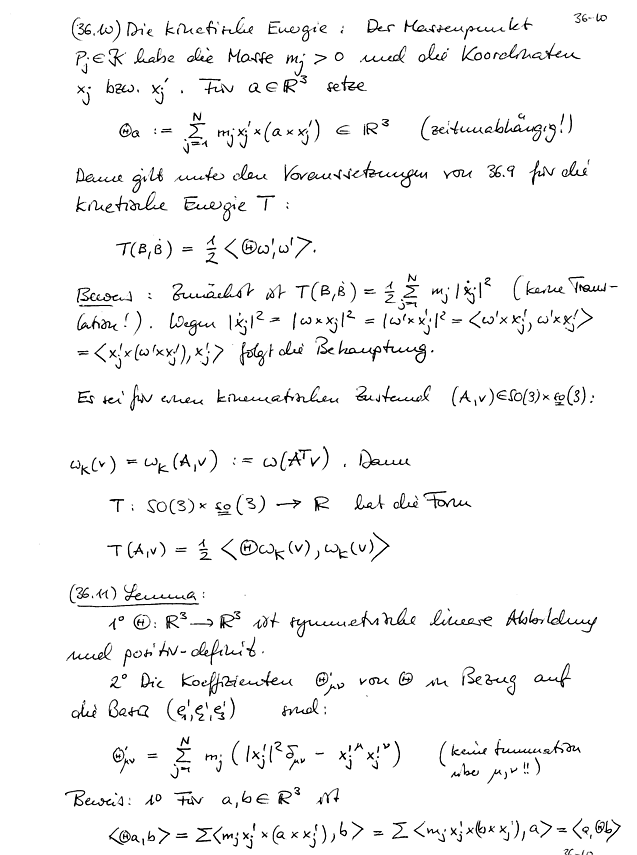 36-10
(36.10) Die kinetische Energie : Der Massenpunkt
Pj ∈ K habe die Masse mj > 0 und die Koordinaten
xj bzw. xj' . Für a ∈ ℝ³ setze
Θa := Σ_{j=1}^{N} mj xj' × (a × xj') ∈ ℝ³ (zeitunabhängig!)
Dann gilt unter den Voraussetzungen von 36.9 für die
kinetische Energie T :
T(B,Ḃ) = ½ <Θω',ω'>.
Beweis : Zunächst ist T(B,Ḃ) = ½ Σ_{j=1}^{N} mj |ẋj|² (keine Trans-
lation!). Wegen |ẋj|² = |ω×xj|² = |ω'×xj'|² = <ω'×xj', ω'×xj'>
= <xj'×(ω'×xj'), xj'> folgt die Behauptung.
Es sei für einen kinematischen Zustand (A,v) ∈ SO(3)×so(3):
ω_K(v) = ω_K(A,v) := ω(AᵀV) . Dann
T : SO(3) × so(3) → ℝ hat die Form
T(A,v) = ½ <Θω_K(v), ω_K(v)>
(36.11) Lemma :
1° Θ: ℝ³ → ℝ³ ist symmetrische lineare Abbildung
und positiv-definit.
2° Die Koeffizienten Θ'_{μν} von Θ in Bezug auf
die Basis (e₁',e₂',e₃') sind:
Θ'_{μν} = Σ_{j=1}^{N} mj ( |xj'|² δ_{μν} - xj'^μ xj'^ν ) (keine Summation
über μ,ν !!)
Beweis: 1° Für a,b ∈ ℝ³ ist
<Θa,b> = Σ<mj xj' × (a × xj'), b> = Σ <mj xj' × (b × xj'), a> = <a,Θb>
36-10